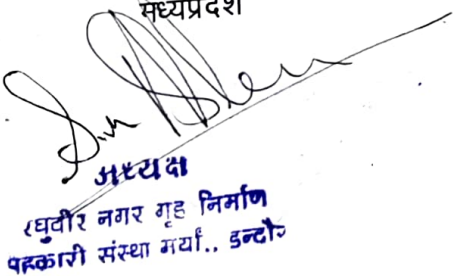 मध्यप्रदेश
अध्यक्ष
रघुवीर नगर गृह निर्माण
सहकारी संस्था मर्या.. इन्दौर